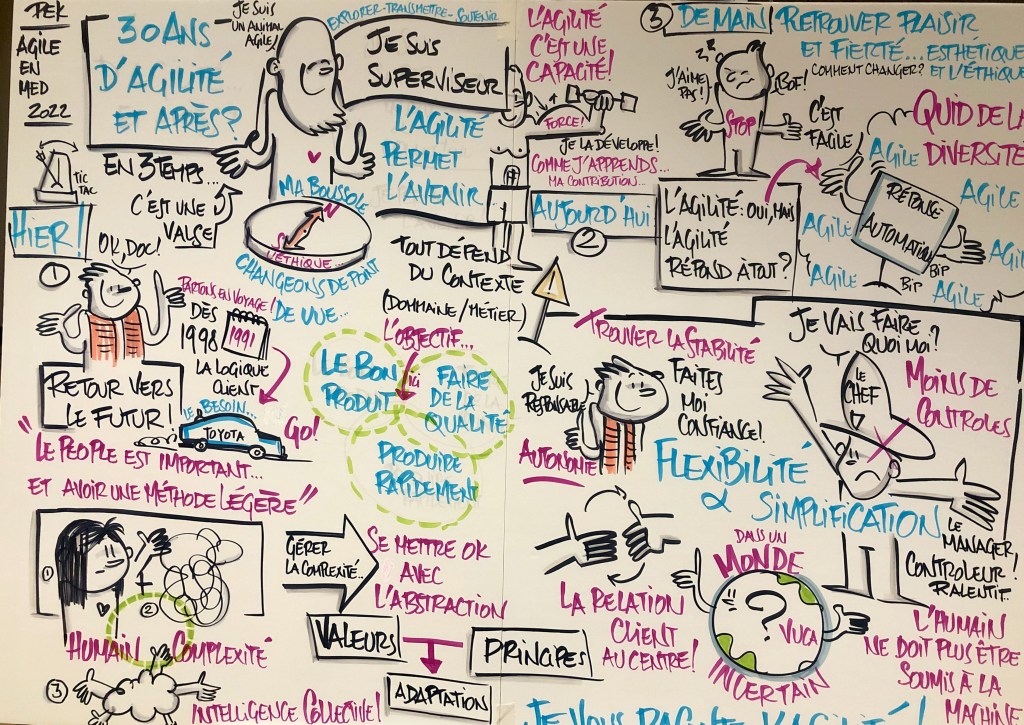 PEK
AGILE
EN
MED
2022
30 ANS
D'AGILITÉ
ET APRÈS?
JE SUIS
UN ANIMAL
AGILE!
EXPLORER-TRANSMETTRE-SOUTENIR
JE SUIS
SUPERVISEUR
L'AGILITÉ
PERMET
L'AVENIR
TIC
TAC
EN 3 TEMPS...
C'EST UNE
VALSE
MA BOUSSOLE
N
S
L'ÉTHIQUE...
CHANGEONS DE POINT
DE VUE...
HIER!
1
OK, DOC!
RETOUR VERS
LE FUTUR!
PARTONS EN VOYAGE!
DÈS
1998
1991
LA LOGIQUE
CLIENT
LE BESOIN...
TOYOTA
GO!
"LE PEOPLE EST IMPORTANT...
ET AVOIR UNE MÉTHODE LÉGÈRE"
TOUT DÉPEND
DU CONTEXTE
(DOMAINE/MÉTIER)
L'OBJECTIF...
ICI
LE BON
PRODUIT
FAIRE
DE LA
QUALITÉ
PRODUIRE
RAPIDEMENT
1
+
2
HUMAIN
COMPLEXITÉ
3
INTELLIGENCE COLLECTIVE!
GÉRER
LA COMPLEXITÉ..
SE METTRE OK
AVEC
L'ABSTRACTION
VALEURS
PRINCIPES
ADAPTATION
L'AGILITÉ
C'EST UNE
CAPACITÉ!
+
FORCE!
JE LA DÉVELOPPE!
COMME J'APPRENDS...
MA CONTRIBUTION...
AUJOURD'HUI
2
L'AGILITÉ: OUI, MAIS
L'AGILITÉ
RÉPOND À TOUT?
!
TROUVER LA STABILITÉ
JE SUIS
RESPONSABLE
AUTONOMIE
FAITES
MOI
CONFIANCE!
FLEXIBILITÉ
& SIMPLIFICATION
LA RELATION
CLIENT
AU CENTRE!
3
DEMAIN
RETROUVER PLAISIR
ET FIERTÉ... ESTHÉTIQUE
COMMENT CHANGER? ET L'ÉTHIQUE
J'AIME
PAS!
BOF!
STOP
C'EST
FACILE
QUID DE LA
DIVERSITÉ
AGILE
AGILE
AGILE
AGILE
AGILE
AGILE
RÉPONSE
AUTOMATION
BIP
BIP
JE VAIS FAIRE
QUOI MOI?
LE
CHEF
MOINS DE
CONTROLES
LE
MANAGER
CONTROLEUR!
RALENTIT...
DANS UN
MONDE
?
VUCA
INCERTAIN
L'HUMAIN
NE DOIT PLUS ÊTRE
SOUMIS À LA
MACHINE